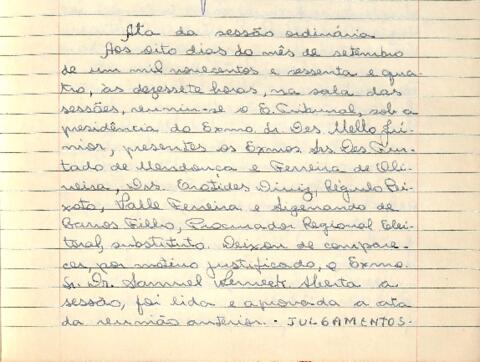 Ata da sessão ordinária
Aos oito dias do mês de setembro
de um mil novecentos e sessenta e qua-
tro, às dezessete horas, na sala das
sessões, reuniu-se o E. Tribunal, sob a
presidência do Exmo. Sr. Des. Mello Jú-
nior, presentes os Exmos. Srs. Des. Fur-
tado de Mendonça e Ferreira de Oli-
veira, Drs. Crotides Diniz, Régulo Pei-
xoto, Valle Ferreira e Sigenando de
Barros Filho, Procurador Regional Elei-
toral, substituto. Deixou de compare-
cer, por motivo justificado, o Exmo.
Sr. Dr. Samuel Werneck. Aberta a
sessão, foi lida e aprovada a ata
da reunião anterior. - JULGAMENTOS -